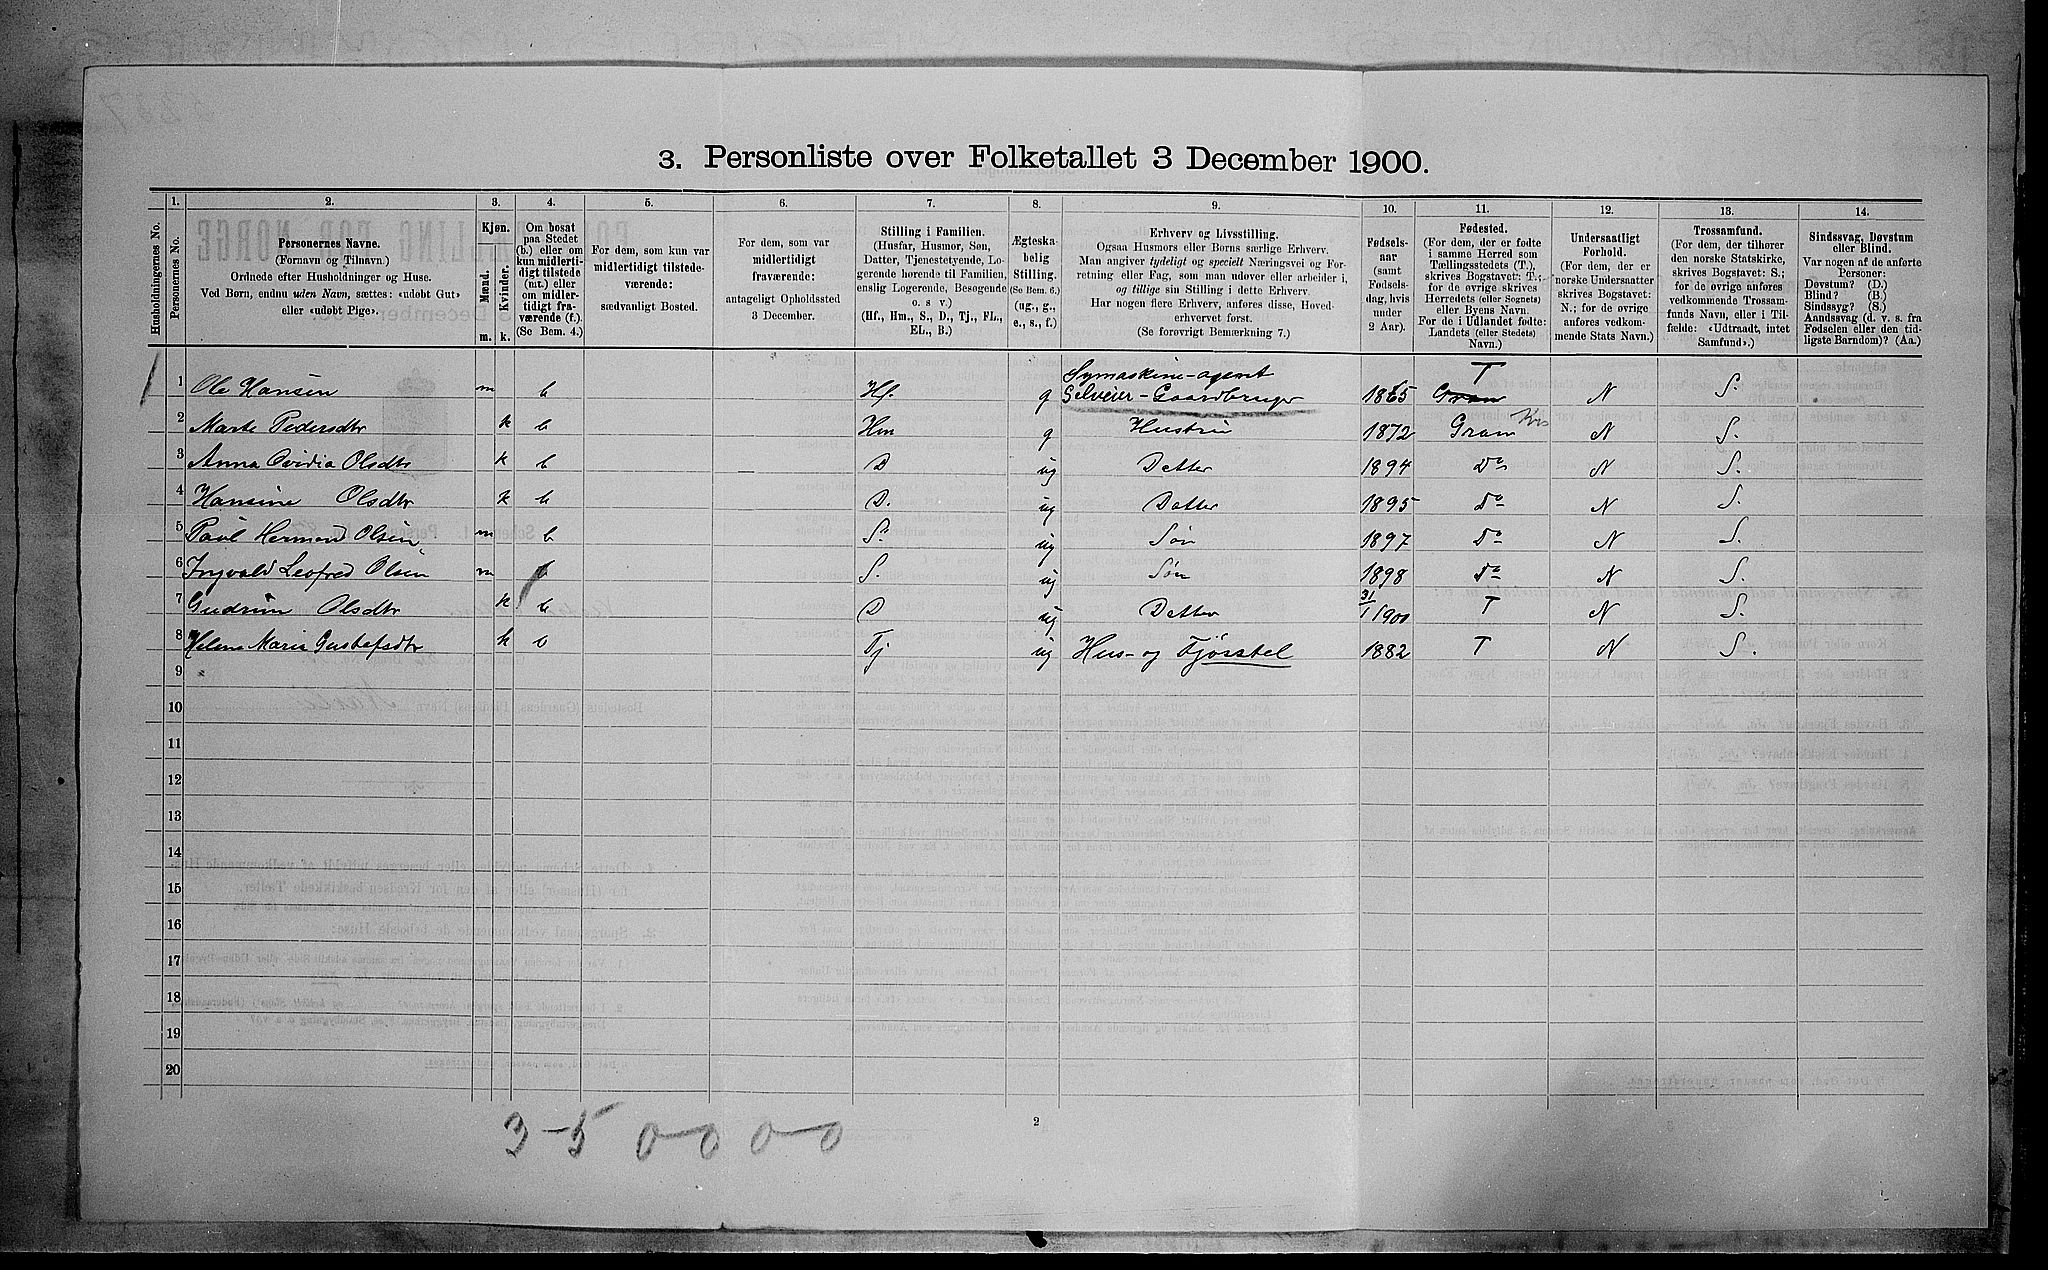 3. Personliste over Folketallet 3 December 1900.
1. 2. 3. 4. 5. 6. 7. 8. 9. 10. 11. 12. 13. 14.
Husholdningernes No.
Personernes No.
Personernes Navne.
(Fornavn og Tilnavn.)
Ordnede efter Husholdninger og Huse.
Ved Børn, endnu uden Navn, sættes: «udøbt Gut»
eller «udøbt Pige».
Kjøn.
Mænd.
Kvinder.
m. k.
Om bosat
paa Stedet
(b.) eller om
kun midler-
tidigt tilstede
(mt.) eller
om midler-
tidigt fra-
værende (f.).
(Se Bem. 4.)
For dem, som kun var
midlertidigt tilstede-
værende:
sædvanligt Bosted.
For dem, som var
midlertidigt
fraværende:
antageligt Opholdssted
3 December.
Stilling i Familien.
(Husfar, Husmor, Søn,
Datter, Tjenestetyende, Lo-
gerende hørende til Familien,
enslig Logerende, Besøgende
o. s v.)
(Hf., Hm., S., D., Tj., FL.,
EL., B.)
Ægteska-
belig
Stilling.
(Se Bem. 6.)
(ug., g.,
e., s., f.)
Erhverv og Livsstilling.
Ogsaa Husmors eller Børns særlige Erhverv.
Man angiver tydeligt og specielt Næringsvei og For-
retning eller Fag, som man udøver eller arbeider i,
og tillige sin Stilling i dette Erhverv.
Har nogen flere Erhverv, anføres disse, Hoved-
erhvervet først.
(Se forøvrigt Bemærkning 7.)
Fødsels-
aar
(samt
Fødsels-
dag, hvis
under
2 Aar).
Fødested.
(For dem, der er fødte
i samme Herred som
Tællingsstedets (T.),
skrives Bogstavet: T.;
for de øvrige skrives
Herredets (eller Sognets)
eller Byens Navn.
For de i Udlandet fødte:
Landets (eller Stedets)
Navn.)
Undersaatligt
Forhold.
(For dem, der er
norske Undersaatter
skrives Bogstavet:
N.; for de øvrige
anføres vedkom-
mende Stats Navn.)
Trossamfund.
(For dem, der tilhører
den norske Statskirke,
skrives Bogstavet: S.;
for de øvrige anføres
vedkommende Trossam-
funds Navn, eller i Til-
fælde: «Udtraadt, intet
Samfund».)
Sindssvag, Døvstum
eller Blind.
Var nogen af de anførte
Personer:
Døvstum? (D.)
Blind? (B.)
Sindssyg? (S.)
Aandssvag (d. v. s. fra
Fødselen eller den tid-
ligste Barndom)? (Aa.)
Symaskine-agent T
1 1 Ole Hansen m b Hf. g Selveier-Gaardbruger 1865 Gran N S.
2 Marte Pedersdtr k b Hm g Hustru 1872 Gran N S.
3 Anna Ovidia Olsdtr k b D ug Datter 1894 Do N S.
4 Hansine Olsdtr k b D. ug Datter 1895 Do N S.
5 Paul Herman Olsen m b S. ug Søn 1897 Do N S.
6 Ingvald Leofred Olsen m b S. ug Søn 1898 Do N S.
7 Gudrun Olsdtr k b D ug Datter 31/1 1900 T N S.
8 Helene Marie Gustafsdtr k b Tj ug Hus- og Fjøsstel 1882 T N S.
9
10
11
12
13
14
15
16
17
18
19
20
3-5 0-0 0-0
2